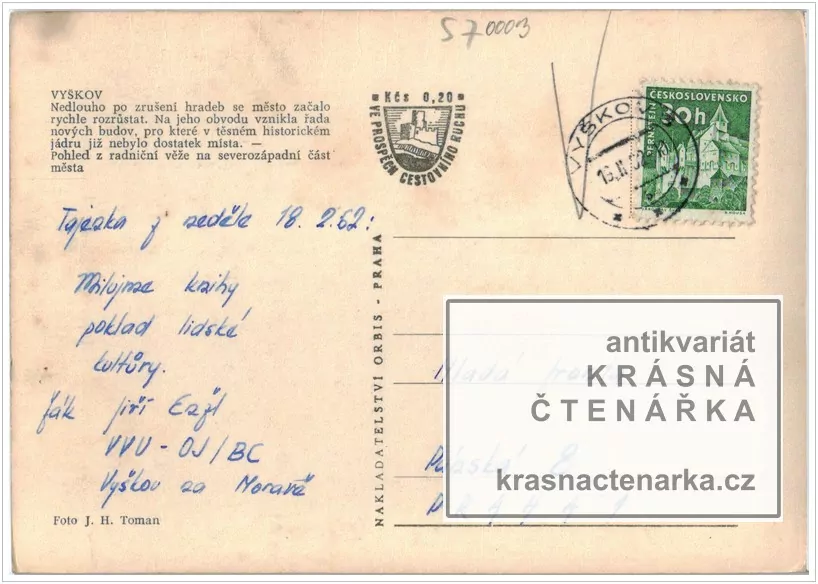 S 7 0003
VYŠKOV
Nedlouho po zrušení hradeb se město začalo
rychle rozrůstat. Na jeho obvodu vznikla řada
nových budov, pro které v těsném historickém
jádru již nebylo dostatek místa. —
Pohled z radniční věže na severozápadní část
města
Kčs 0,20
VE PROSPĚCH CESTOVNÍHO RUCHU
ČESKOSLOVENSKO
30h
PERNŠTEJN
VYŠKOV
Tajenka z neděle 18. 2. 62:
Milujme knihy
poklad lidské
kultury.
žák Jiří
VVU - OJ/BC
Vyškov na Moravě
Foto J. H. Toman
NAKLADATELSTVÍ ORBIS - PRAHA
Mladá fronta
Panská 8
PRAHA 1
antikvariát
KRÁSNÁ
ČTENÁŘKA
krasnactenarka.cz